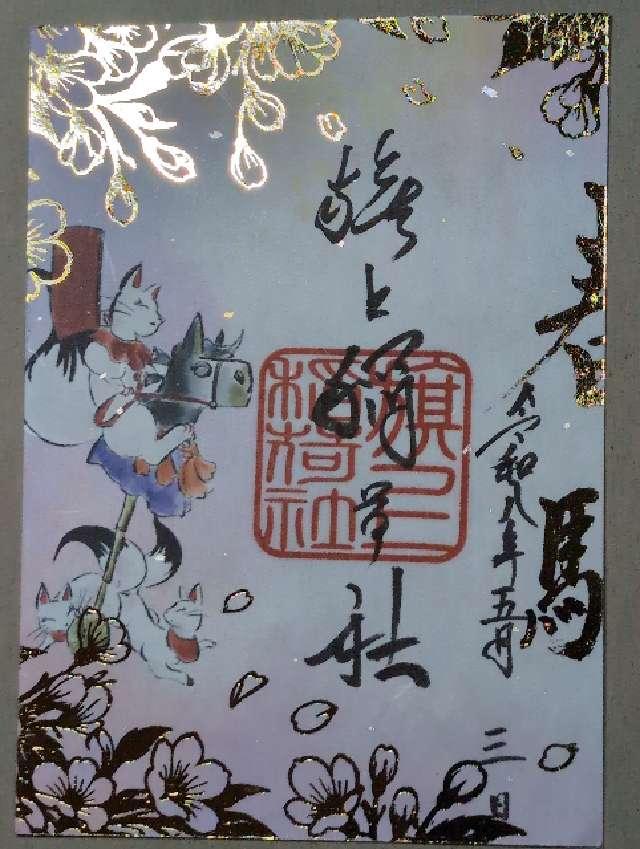 春馬
令和八年五月三日
旗上稲荷社
旗上
稲荷社